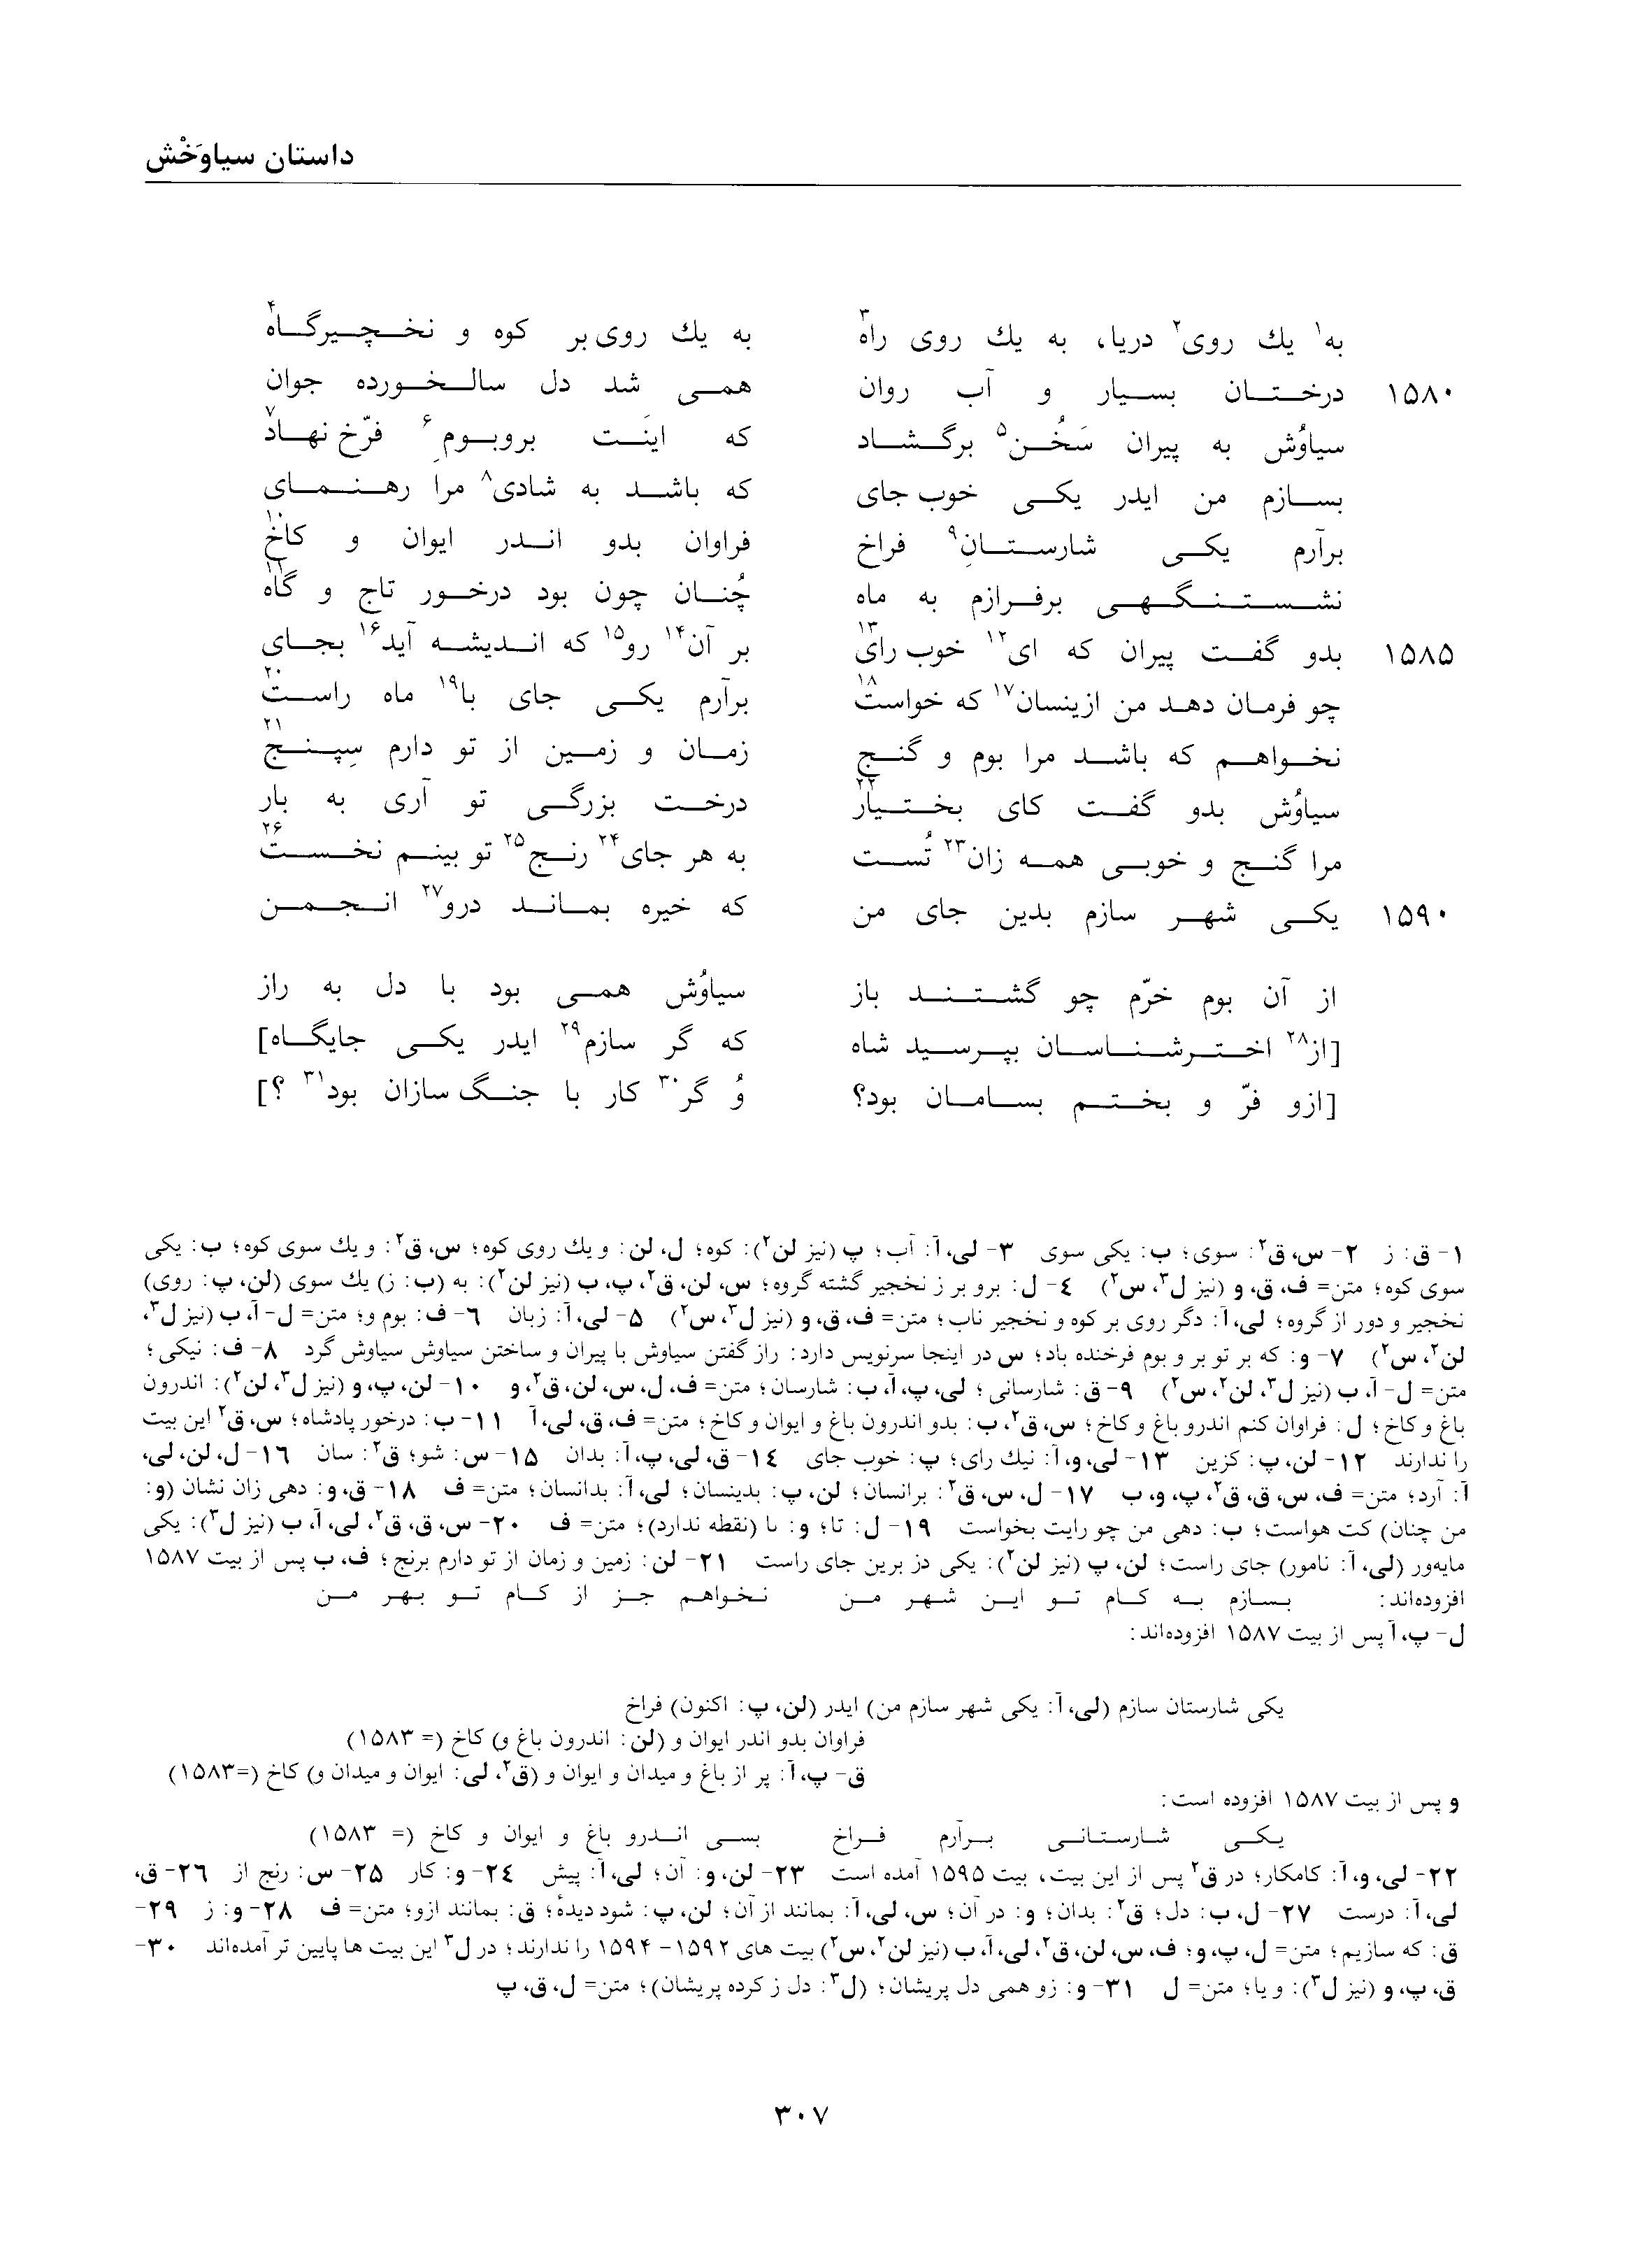 داستان سیاوَخْش
به۱ یك روی۲ دریا، به یك روی راه۳ به یك روی بر کوه و نخچیرگاه۴
۱۵۸۰ درختان بسیار و آب روان همی شد دل سالخورده جوان
سیاوُش به پیران سَخُن۵ برگشاد که اینَت بروبومِ۶ فرّخ نهاد۷
بسازم من ایدر یکی خوب جای که باشد به شادی۸ مرا رهنمای
برآرم یکی شارستانِ۹ فراخ فراوان بدو اندر ایوان و کاخ۱۰
نشستنگهی برفرازم به ماه چُنان چون بود درخور تاج و گاه۱۱
۱۵۸۵ بدو گفت پیران که ای۱۲ خوب رای۱۳ بر آن۱۴ رو۱۵ که اندیشه آید۱۶ بجای
چو فرمان دهد من ازینسان۱۷ که خواست۱۸ برآرم یکی جای با۱۹ ماه راست۲۰
نخواهم که باشد مرا بوم و گنج زمان و زمین از تو دارم سِپنج۲۱
سیاوُش بدو گفت کای بختیار۲۲ درخت بزرگی تو آری به بار
مرا گنج و خوبی همه زان۲۳ تُست به هر جای۲۴ رنج۲۵ تو بینم نخست۲۶
۱۵۹۰ یکی شهر سازم بدین جای من که خیره بماند درو۲۷ انجمن
از آن بوم خرّم چو گشتند باز سیاوُش همی بود با دل به راز
[از۲۸ اخترشناسان بپرسید شاه که گر سازم۲۹ ایدر یکی جایگاه]
[ازو فرّ و بختم بسامان بود؟ وُ گر۳۰ کار با جنگ سازان بود۳۱ ؟]
۱- ق: ز ۲- س، ق۲: سوی؛ ب: یکی سوی ۳- لی، آ: آب؛ پ (نیز لن۲): کوه؛ ل، لن: و یك روی کوه؛ س، ق۲: و یك سوی کوه؛ ب: یکی
سوی کوه؛ متن= ف، ق، و (نیز ل۳، س۲) ۴- ل: برو بر ز نخجیر گشته گروه؛ س، لن، ق۲، پ، ب (نیز لن۲): به (ب: ز) یك سوی (لن، پ: روی)
نخجیر و دور از گروه؛ لی، آ: دگر روی بر کوه و نخجیر ناب؛ متن= ف، ق، و (نیز ل۳، س۲) ۵- لی، آ: زبان ۶- ف: بوم و؛ متن= ل- آ، ب (نیز ل۳،
لن۲، س۲) ۷- و: که بر تو بر و بوم فرخنده باد؛ س در اینجا سرنویس دارد: راز گفتن سیاوش با پیران و ساختن سیاوش سیاوش گرد ۸- ف: نیکی؛
متن= ل- آ، ب (نیز ل۳، لن۲، س۲) ۹- ق: شارسانی؛ لی، پ، آ، ب: شارسان؛ متن= ف، ل، س، لن، ق۲، و ۱۰- لن، پ، و (نیز ل۳، لن۲): اندرون
باغ و کاخ؛ ل: فراوان کنم اندرو باغ و کاخ؛ س، ق۲، ب: بدو اندرون باغ و ایوان و کاخ؛ متن= ف، ق، لی، آ ۱۱- ب: درخور پادشاه؛ س، ق۲ این بیت
را ندارند ۱۲- لن، پ: کزین ۱۳- لی، و، آ: نیك رای؛ پ: خوب جای ۱۴- ق، لی، پ، آ: بدان ۱۵- س: شو؛ ق۲: سان ۱۶- ل، لن، لی،
آ: آرد؛ متن= ف، س، ق، ق۲، پ، و، ب ۱۷- ل، س، ق۲: برانسان؛ لن، پ: بدینسان؛ لی، آ: بدانسان؛ متن= ف ۱۸- ق، و: دهی زان نشان (و:
من چنان) کت هواست؛ ب: دهی من چو رایت بخواست ۱۹- ل: تا؛ و: ٮا (نقطه ندارد)؛ متن= ف ۲۰- س، ق، ق۲، لی، آ، ب (نیز ل۳): یکی
مایه‌ور (لی، آ: نامور) جای راست؛ لن، پ (نیز لن۲): یکی دز برین جای راست ۲۱- لن: زمین و زمان از تو دارم برنج؛ ف، ب پس از بیت ۱۵۸۷
افزوده‌اند: بسازم به کام تو این شهر من نخواهم جز از کام تو بهر من
ل- پ، آ پس از بیت ۱۵۸۷ افزوده‌اند:
یکی شارستان سازم (لی، آ: یکی شهر سازم من) ایدر (لن، پ: اکنون) فراخ
فراوان بدو اندر ایوان و (لن: اندرون باغ و) کاخ (= ۱۵۸۳)
ق- پ، آ: پر از باغ و میدان و ایوان و (ق۲، لی: ایوان و میدان و) کاخ (=۱۵۸۳)
و پس از بیت ۱۵۸۷ افزوده است:
یکی شارستانی برآرم فراخ بسی اندرو باغ و ایوان و کاخ (= ۱۵۸۳)
۲۲- لی، و، آ: کامکار؛ در ق۲ پس از این بیت، بیت ۱۵۹۵ آمده است ۲۳- لن، و: آن؛ لی، آ: پیش ۲۴- و: کار ۲۵- س: رنج از ۲۶- ق،
لی، آ: درست ۲۷- ل، ب: دل؛ ق۲: بدان؛ و: در آن؛ س، لی، آ: بمانند از آن؛ لن، پ: شود دیدهٔ؛ ق: بمانند ازو؛ متن= ف ۲۸- و: ز ۲۹-
ق: که سازیم؛ متن= ل، پ، و؛ ف، س، لن، ق۲، لی، آ، ب (نیز لن۲، س۲) بیت های ۱۵۹۲- ۱۵۹۴ را ندارند؛ در ل۳ این بیت ها پایین تر آمده‌اند ۳۰-
ق، پ، و (نیز ل۳): و یا؛ متن= ل ۳۱- و: زو همی دل پریشان؛ (ل۳: دل ز کرده پریشان)؛ متن= ل، ق، پ
۳۰۷